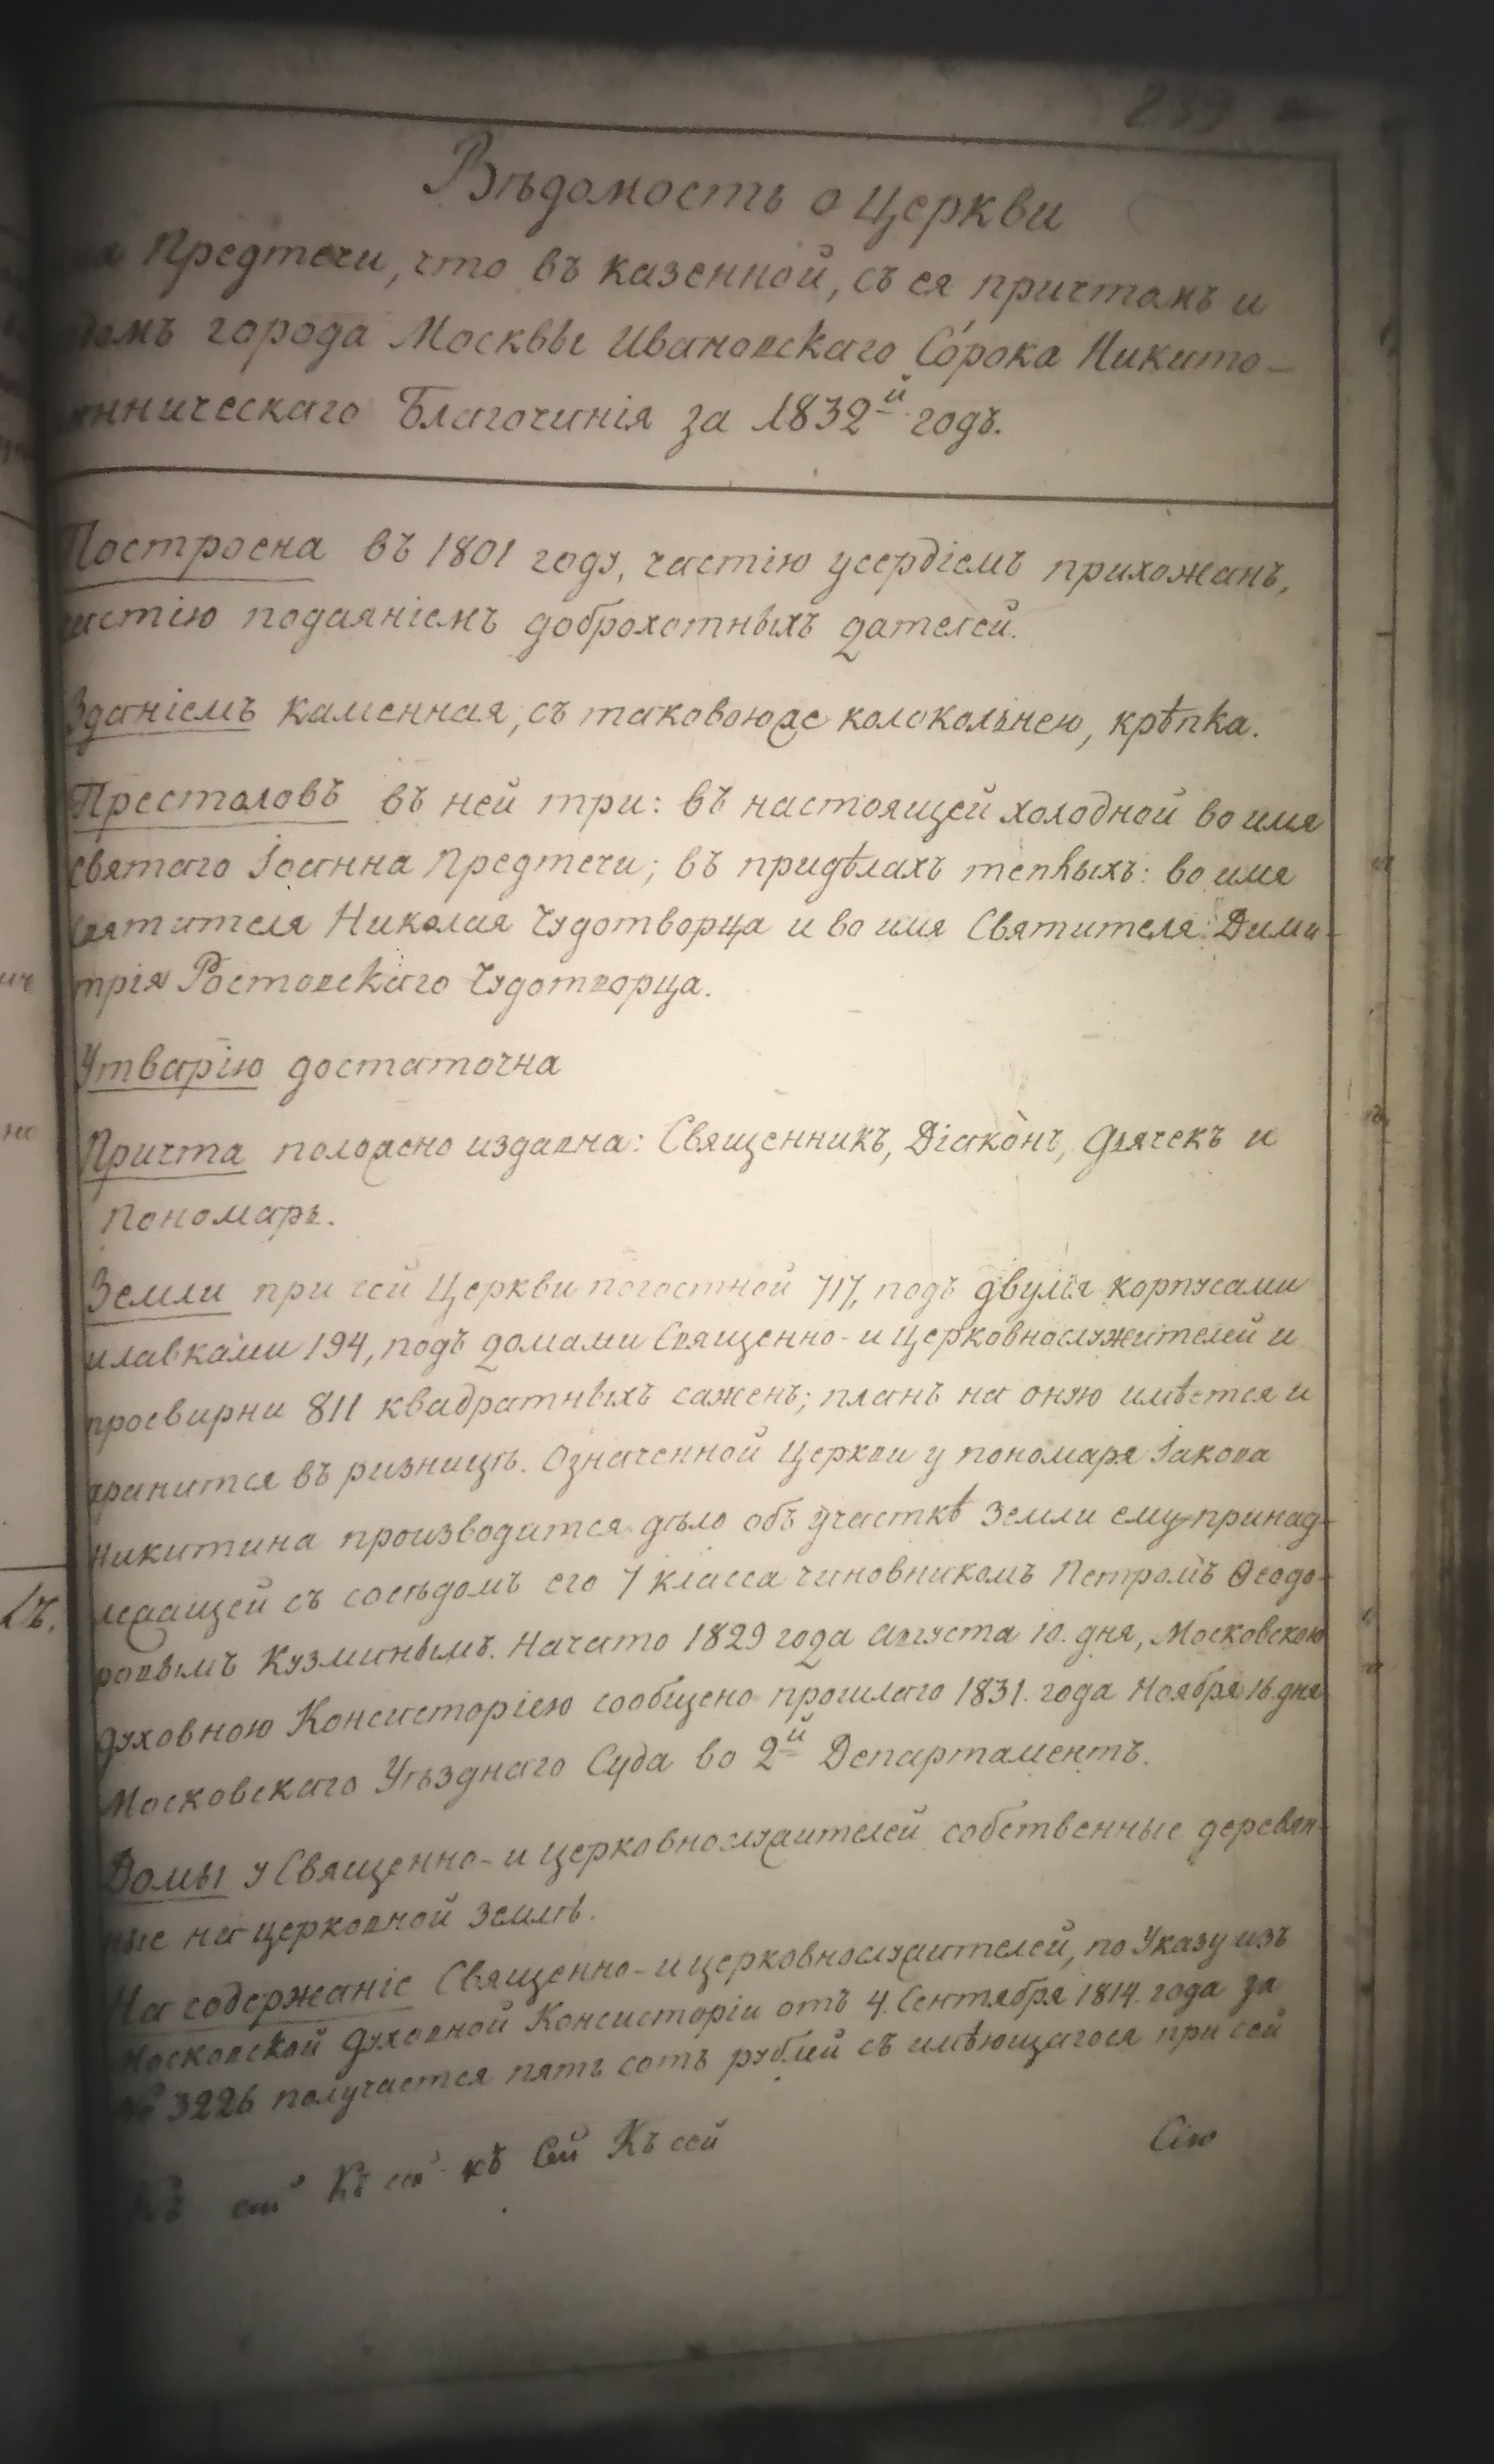 239
Вѣдомость о Церкви
на Предтечи, что въ казенной, съ ея причтомъ и
домъ города Москвы Ивановскаго Со́рока Никито-
нническаго Благочинія за 1832й годъ.
Построена въ 1801 году, частію усердіемъ прихожанъ,
частію подаяніемъ доброхотныхъ дателей.
Зданіемъ каменная, съ таковоюже колокольнею, крѣпка.
Престоловъ въ ней три: въ настоящей холодной во имя
святаго Іоанна Предтечи; въ придѣлахъ теплыхъ: во имя
святителя Николая Чудотворца и во имя Святителя Дими-
трія Ростовскаго Чудотворца.
Утварію достаточна
Причта положено издавна: Священникъ, Діаконъ, Дьячекъ и
Пономарь.
Земли при сей Церкви погостной 717, подъ двумя корпусами
и лавками 194, подъ домами Священно- и Церковнослужителей и
просвирни 811 квадратныхъ сажень; планъ на оную имѣется и
хранится въ ризницѣ. Означенной Церкви у пономаря Іакова
Никитина производится дѣло объ участкѣ земли ему принад-
лежащей съ сосѣдомъ его 7 класса чиновникомъ Петромъ Ѳеодо-
ровымъ Кузминымъ. Начато 1829 года августа 10. дня, Московскою
Духовною Консисторіею сообщено прошлаго 1831. года Ноября 16 дня
Московскаго Уѣзднаго Суда во 2й Департаментъ.
Домы у Священно- и церковнослужителей собственные деревян-
ные на церковной землѣ.
На содержаніе Священно- и церковнослужителей, по Указу изъ
Московской Духовной Консисторіи отъ 4. Сентября 1814. года за
№ 3226 получается пять сотъ рублей съ имѣющагося при сей
Къ сей Къ сей къ Сей Къ сей
Сію